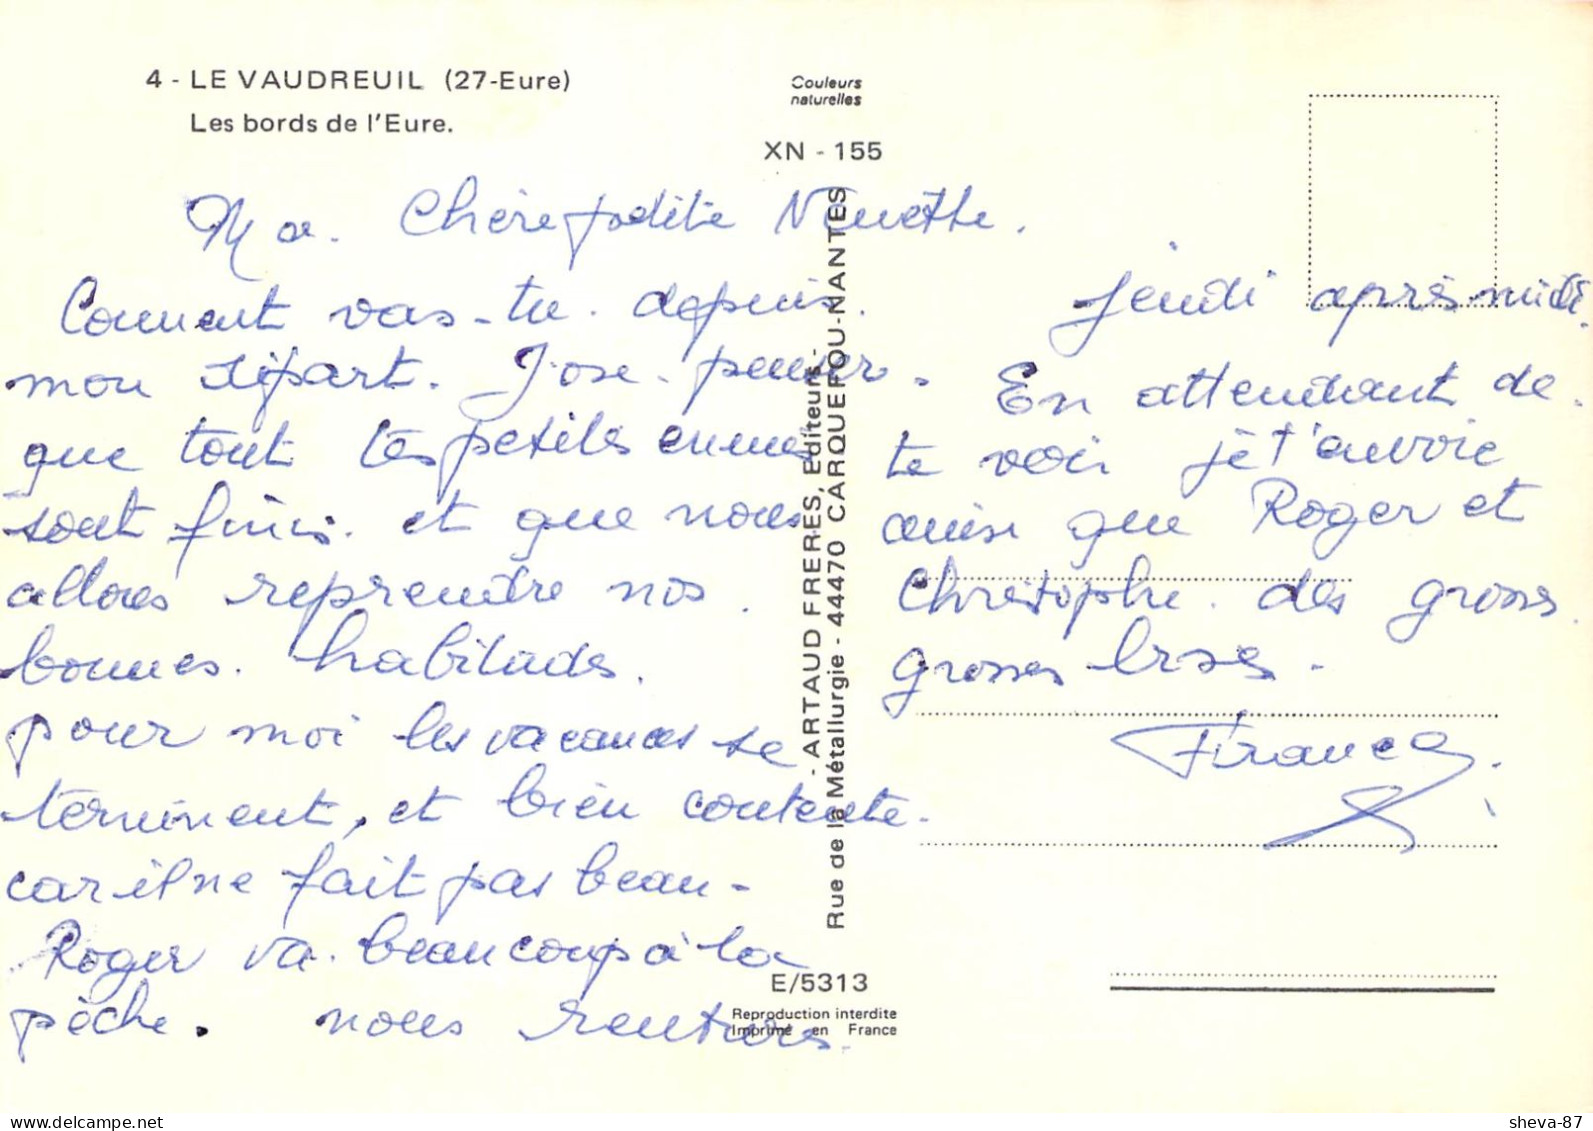 4 - LE VAUDREUIL (27-Eure)
Les bords de l'Eure.
Couleurs
naturelles
XN - 155
Ma. Chère petite
Comment vas-tu. depuis.
mon départ. J'ose. penser.
que tout tes petites ennues
sont finis. et que nous
allons reprendre nos.
bonnes. habitudes.
pour moi les vacances se
terminent, et bien contente.
car il ne fait pas beau-
Roger va. beaucoup à la
pèche. nous rentrons.
jeudi après midi.
En attendant de.
te voir je t'envoie
ainsi que Roger et
Christophe. des grosses.
grosses bises.
France.
- ARTAUD FRERES, Editeurs -
Rue de la Métallurgie - 44470 CARQUEFOU-NANTES
E/5313
Reproduction interdite
Imprimé en France
sheva-87